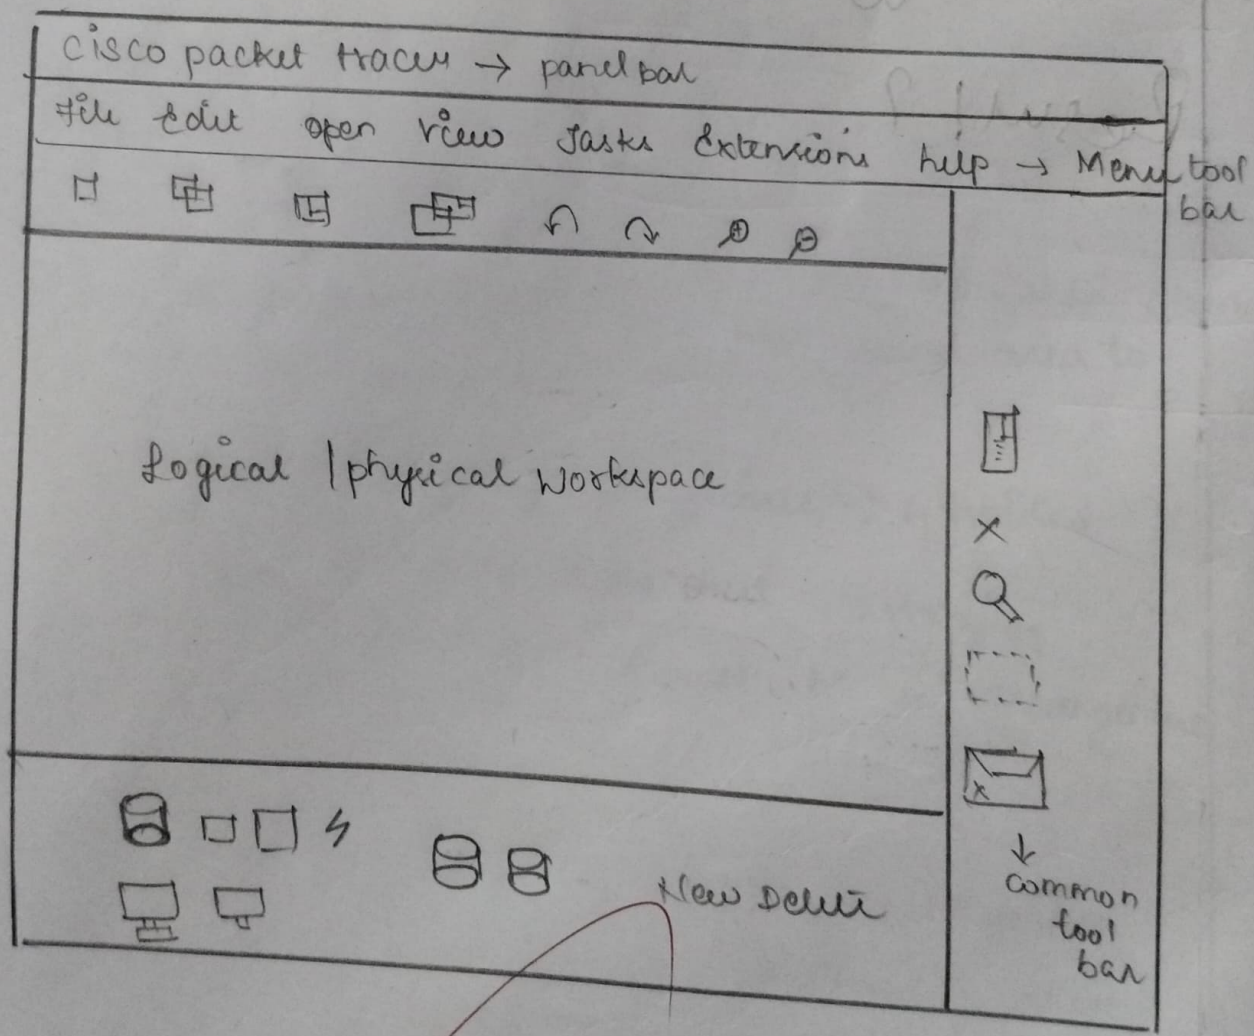 Cisco packet tracer → panel bar
File Edit open view Tasks Extensions help → Menu tool bar
Logical / physical workspace
New Delete
↓
common
tool
bar